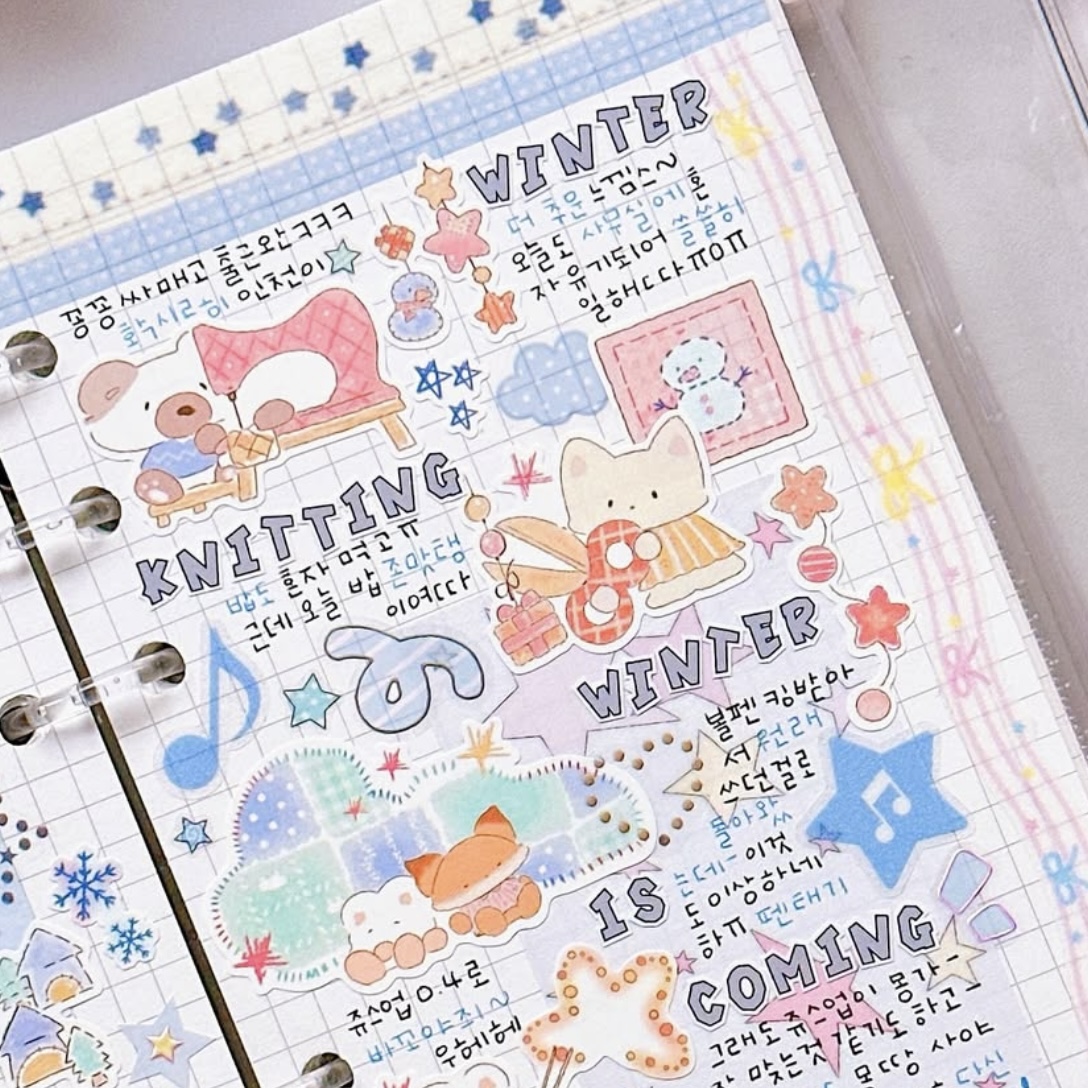 꽁꽁 싸매고 출근완ㅋㅋㅋ
확시리히 인천이
WINTER
더 추운 느껨스~
오늘도 사무실에 혼
자 유기되어 쓸쓸히
일해ㄷ다ㅠㅇㅠ
KNITTING
밥도 혼자 먹고ㅠ
근데 오늘 밥 존맛탱
이여ㄷ다
WINTER
볼펜 킹받아
서 원래
쓰던걸로
돌아와ㅆ
는데- 이것
도 이상하네
하ㅠ 펜태기
IS
COMING
쥬스업 0.4로
바꼬야쥐~
우헤헤
그래도 쥬스업이 몽가-
잘 맞는것 같기도 하고-
몬땅 사야
당신